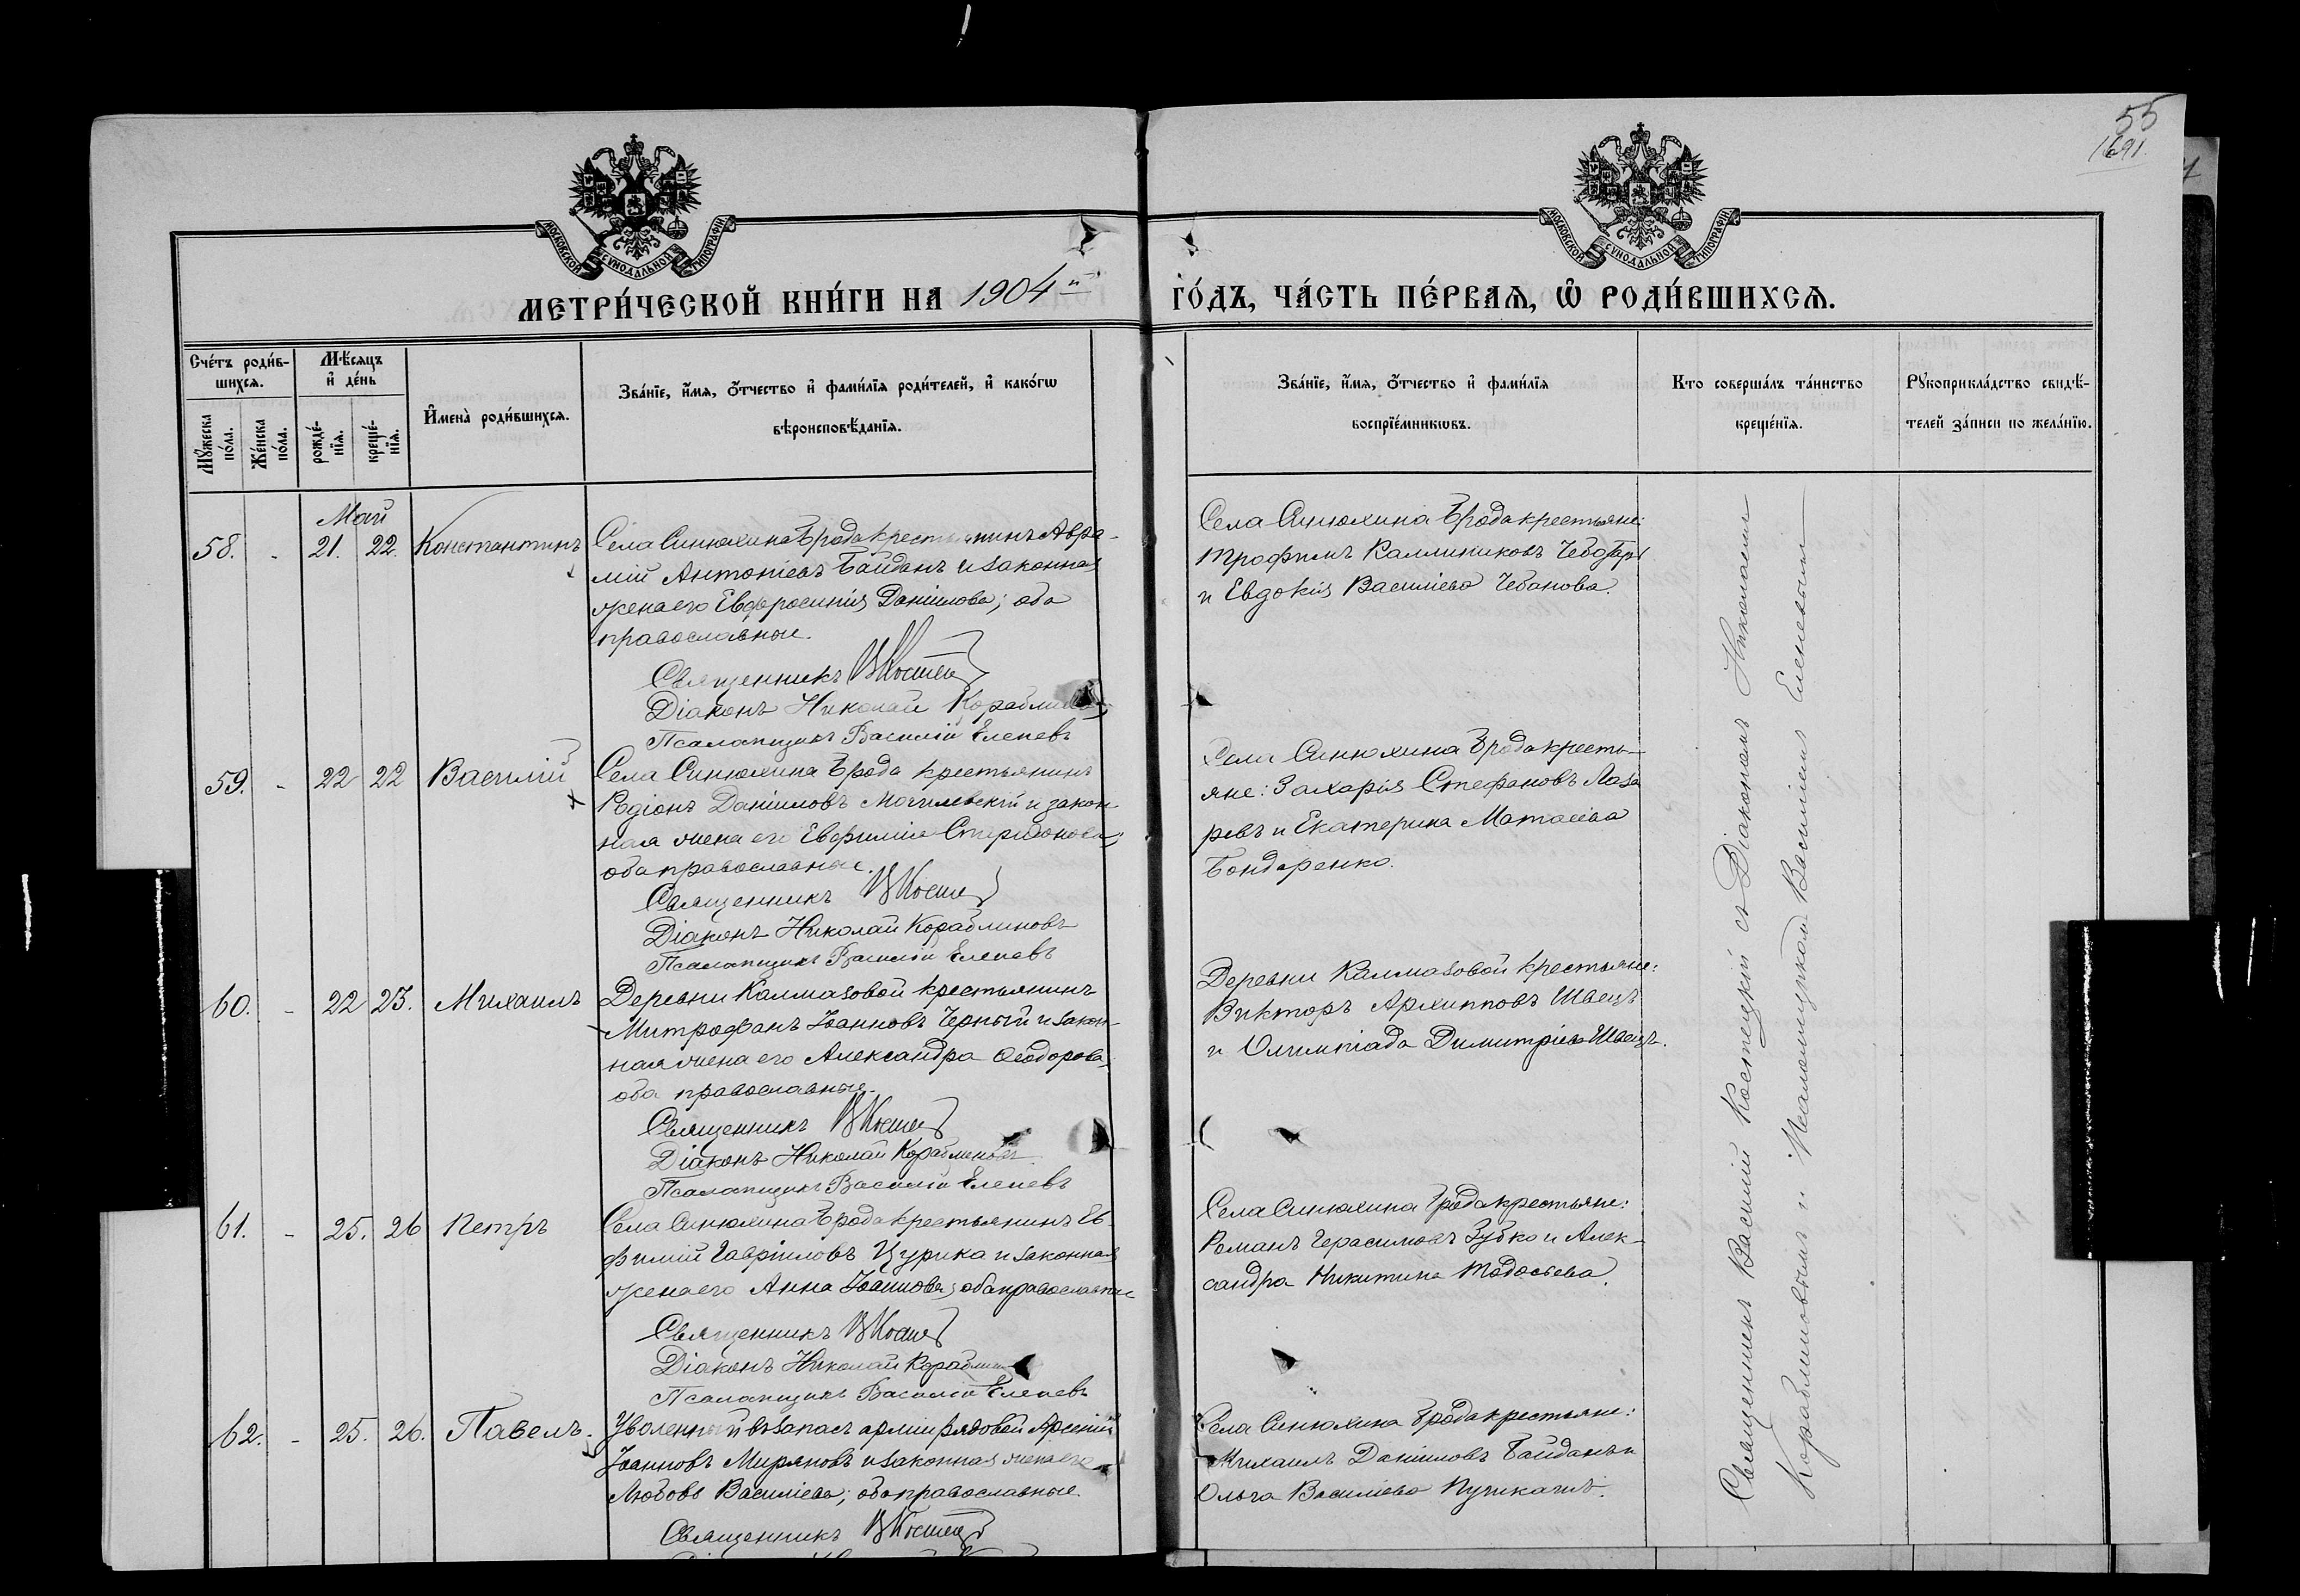 55
1691.
МОСКОВСКОЙ СѴНОДАЛЬНОЙ ТИПОГРАФІИ
МОСКОВСКОЙ СѴНОДАЛЬНОЙ ТИПОГРАФІИ
МЕТРИ́ЧЕСКОЙ КНИ́ГИ НА 1904й
ГО́ДЪ, ЧА́СТЬ ПЕ́РВАѦ, Ѽ РОДИ́ВШИХСѦ.
Сче́тъ роди́в-
шихсѧ.
Мѣ́сяцъ
и҆ де́нь
Мꙋ́жеска по́ла.
Же́нска по́ла.
рожде́-
нїѧ.
креще́-
нїѧ.
И҆мена̀ роди́вшихсѧ.
Зва́нїе, и҆́мѧ, ѻ҆́тчество и҆ фами́лїѧ роди́телей, и҆ како́гѡ
вѣроисповѣ́данїѧ.
Зва́нїе, и҆́мѧ, ѻ҆́тчество и҆ фами́лїѧ
воспрїе́мникѡвъ.
Кто соверша́лъ та́инство
креще́нїѧ.
Рꙋкоприкла́дство свидѣ́-
телей за́писи по жела́нїю.
Май
58. - 21. 22. Константинъ
Села Синюхина Брода крестьянинъ Авра-
мій Антоніевъ Байданъ и законная
жена его Евфросинія Даніилова; оба
православные.
Священникъ
Діаконъ Николай Кораблиновъ
Псаломщикъ Василій Еленевъ
Села Синюхина Брода крестьяне:
Трофимъ Каллиниковъ Чеботарь
и Евдокія Василіева Чебанова.
59. - 22 22 Василій
Села Синюхина Брода крестьянинъ
Родіонъ Даніиловъ Могилевскій и закон-
ная жена его Евфимія Спиридонова,
оба православные.
Священникъ
Діаконъ Николай Кораблиновъ
Псаломщикъ Василій Еленевъ
Села Синюхина Брода кресть-
яне: Захарія Стефановъ Лаза
ревъ и Екатерина Матѳіева
Бондаренко.
60. - 22 23. Михаилъ
Деревни Калмазовой крестьянинъ
Митрофанъ Іоанновъ Черный и закон-
ная жена его Александра Ѳеодорова,
оба православные.
Священникъ
Діаконъ Николай Кораблиновъ
Псаломщикъ Василій Еленевъ
Деревни Калмазовой крестьяне:
Викторъ Архипповъ Швецъ
и Олимпіада Димитріева Швецъ.
61. - 25. 26 Петръ
Села Синюхина Брода крестьянинъ Ев-
фимій Гавріиловъ Цурика и законная
жена его Анна Іоаннова; оба православные
Священникъ
Діаконъ Николай Кораблиновъ
Псаломщикъ Василій Еленевъ
Села Синюхина Брода крестьяне:
Романъ Герасимовъ Зубко и Алек-
сандра Никитина Тодосьева.
62. - 25. 26. Павелъ.
Уволенный въ запасъ арміи рядовой Арсеній
Іоанновъ Миряновъ и законная жена его
Любовь Василіева; оба православные.
Священникъ
Села Синюхина Брода крестьяне:
Михаилъ Даніиловъ Байданъ и
Ольга Василіева
Священникъ Василій Костецкій съ Діакономъ Николаемъ
Кораблиновымъ и Псаломщикомъ Василіемъ Еленевымъ